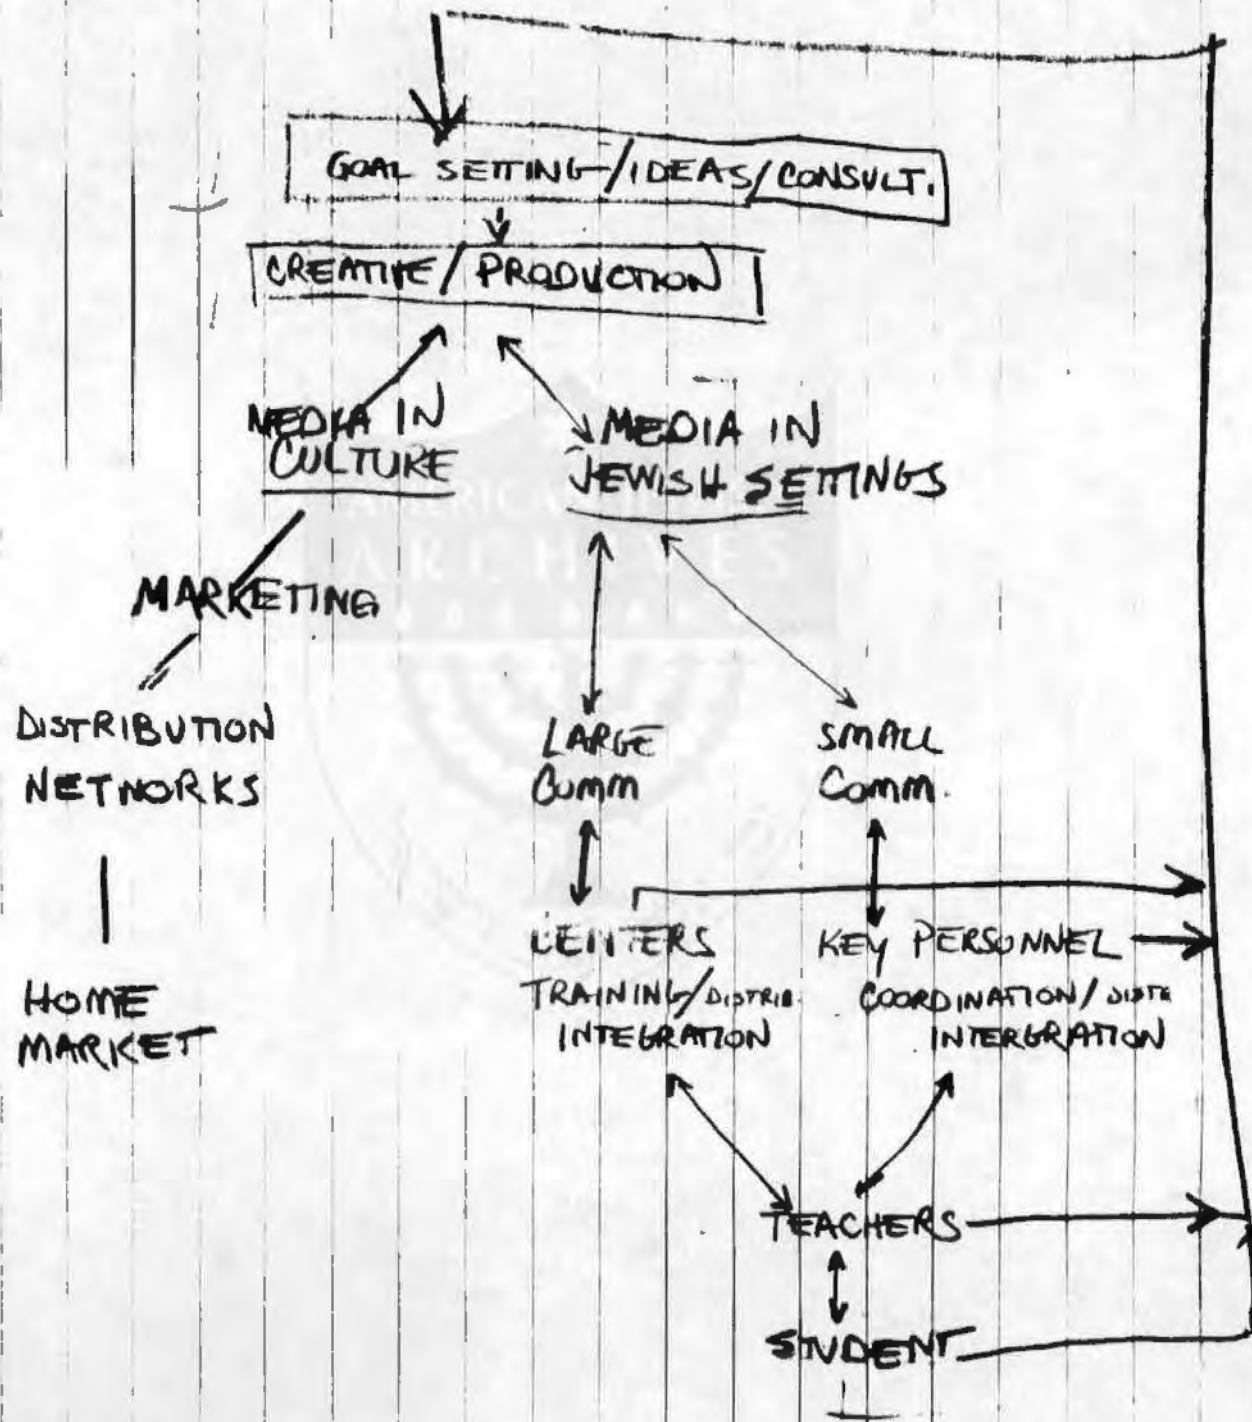 GOAL SETTING/IDEAS/CONSULT.
CREATIVE/PRODUCTION
MEDIA IN
CULTURE
MEDIA IN
JEWISH SETTINGS
MARKETING
DISTRIBUTION
NETWORKS
LARGE
Comm
SMALL
Comm.
HOME
MARKET
CENTERS
TRAINING/DISTRIB.
INTEGRATION
KEY PERSONNEL
COORDINATION/
INTERGRATION
TEACHERS
STUDENT
ARCHIVES